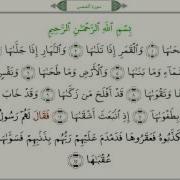 سورة الشمس
بِسْمِ ٱللَّهِ ٱلرَّحْمَٰنِ ٱلرَّحِيمِ
حَىٰهَا ١ وَٱلْقَمَرِ إِذَا تَلَىٰهَا ٢ وَٱلنَّهَارِ إِذَا جَلَّىٰهَا
مَآءِ وَمَا بَنَىٰهَا ٥ وَٱلْأَرْضِ وَمَا طَحَىٰهَا ٦ وَنَفْسٍ
وَتَقْوَىٰهَا ٨ قَدْ أَفْلَحَ مَن زَكَّىٰهَا ٩ وَقَدْ خَابَ
وَىٰهَا ١١ إِذِ ٱنۢبَعَثَ أَشْقَىٰهَا ١٢ فَقَالَ لَهُمْ رَسُولُ
كَذَّبُوهُ فَعَقَرُوهَا فَدَمْدَمَ عَلَيْهِمْ رَبُّهُم بِذَنۢبِهِمْ فَسَوَّىٰهَا
عُقْبَٰهَا ١٥